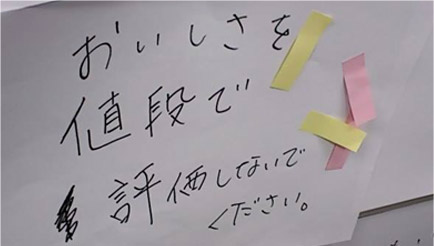 おいしさを
値段で
評価しないで
ください。